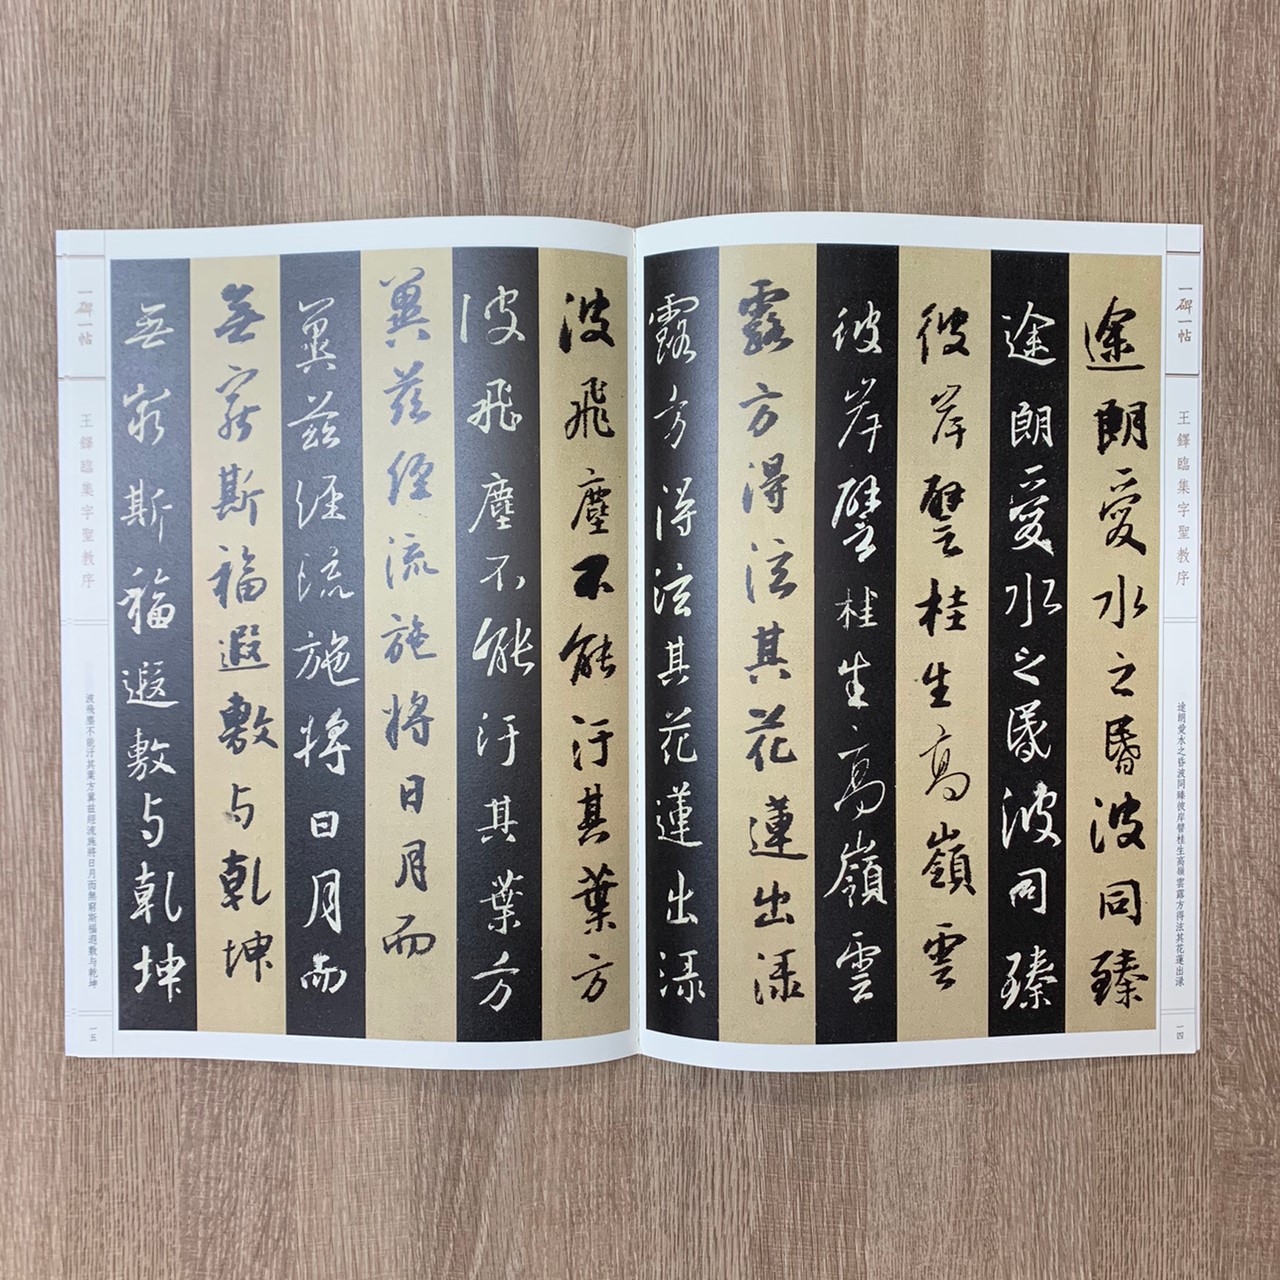 一碑一帖
王鐸臨集字聖教序
途朗愛水之昏波同臻彼岸譬桂生高嶺雲露方得泫其花蓮出渌
一四
途朗愛水之昬波同臻
途朗愛水之昬波同臻
彼岸譬桂生高嶺雲
彼岸譬桂生高嶺雲
露方得泫其花蓮出渌
露方得泫其花蓮出渌
波飛塵不能汙其葉方
波飛塵不能汙其葉方
冀茲經流施將日月而
冀茲經流施將日月而
無窮斯福遐敷与乾坤
無窮斯福遐敷与乾坤
一碑一帖
王鐸臨集字聖教序
波飛塵不能汙其葉方冀茲經流施將日月而無窮斯福遐敷与乾坤
一五